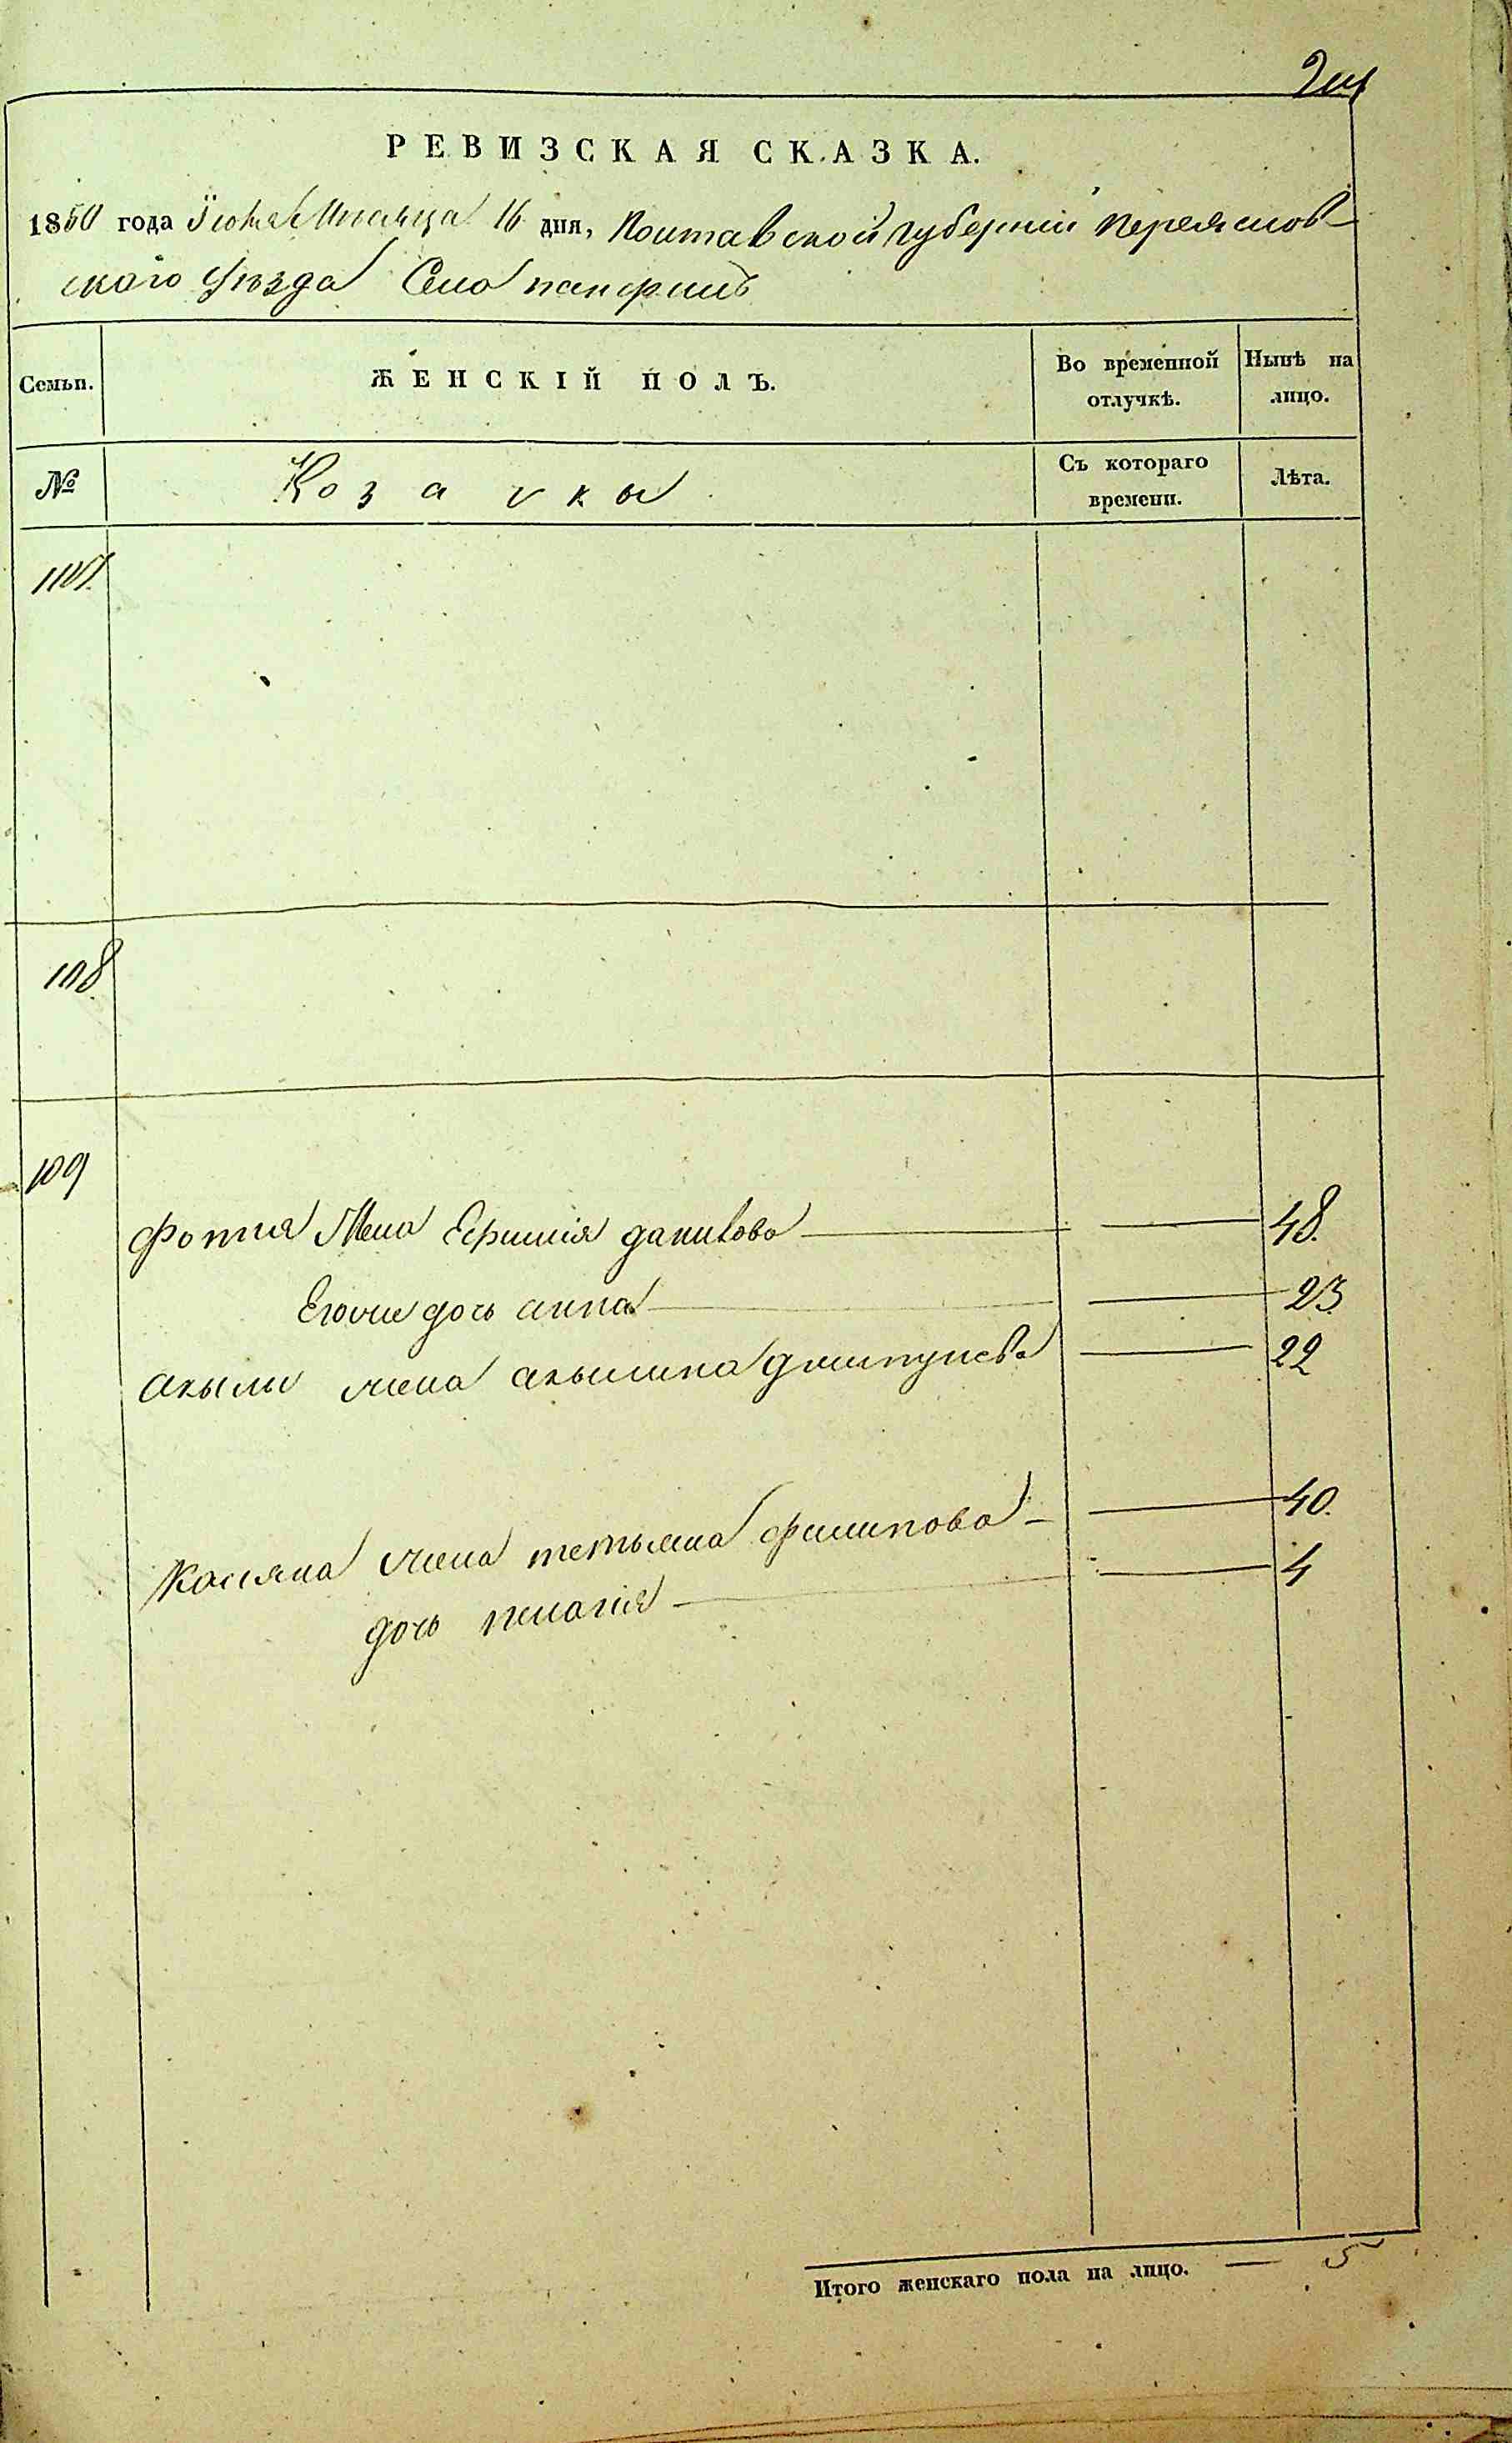 РЕВИЗСКАЯ СКАЗКА.
1850 года Июня Месяца 16 дня, Полтавской губернии Переяслов-
ского Уезда Село
Семьи.
ЖЕНСКІЙ ПОЛЪ.
Во временной отлучкѣ.
Нынѣ на лицо.
№
Козачкы
Съ котораго времени.
Лѣта.
107.
108
109
Фотия Жена Ефимия данилова 48.
Его дочь анна 23
акылы жена акылина 22
Касияна жена тетьяна филипова 40.
дочь пелагия 4
Итого женскаго пола на лицо. — 5